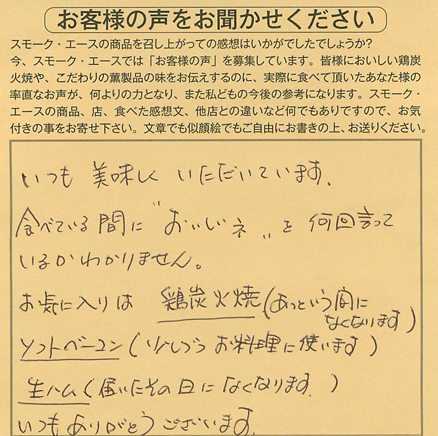 お客様の声をお聞かせください
スモーク・エースの商品を召し上がっての感想はいかがでしたでしょうか?
今、スモーク・エースでは「お客様の声」を募集しています。皆様においしい鶏炭
火焼や、こだわりの薫製品の味をお伝えするのに、実際に食べて頂いたあなた様の
率直なお声が、何よりの力となり、また私どもの今後の参考になります。スモーク・
エースの商品、店、食べた感想文、他店との違いなど何でもありですので、お気
付きの事をお寄せ下さい。文章でも似顔絵でもご自由にお書きの上、お送りください。
いつも 美味しく いただいています。
食べている間に "おいしいネ" と 何回言って
いるかわかりません。
お気に入りは 鶏炭火焼(あっという間に
なくなります)
ソフトベーコン(いろいろ お料理に使います)
生ハム(届いたその日になくなります。)
いつもありがとうございます。